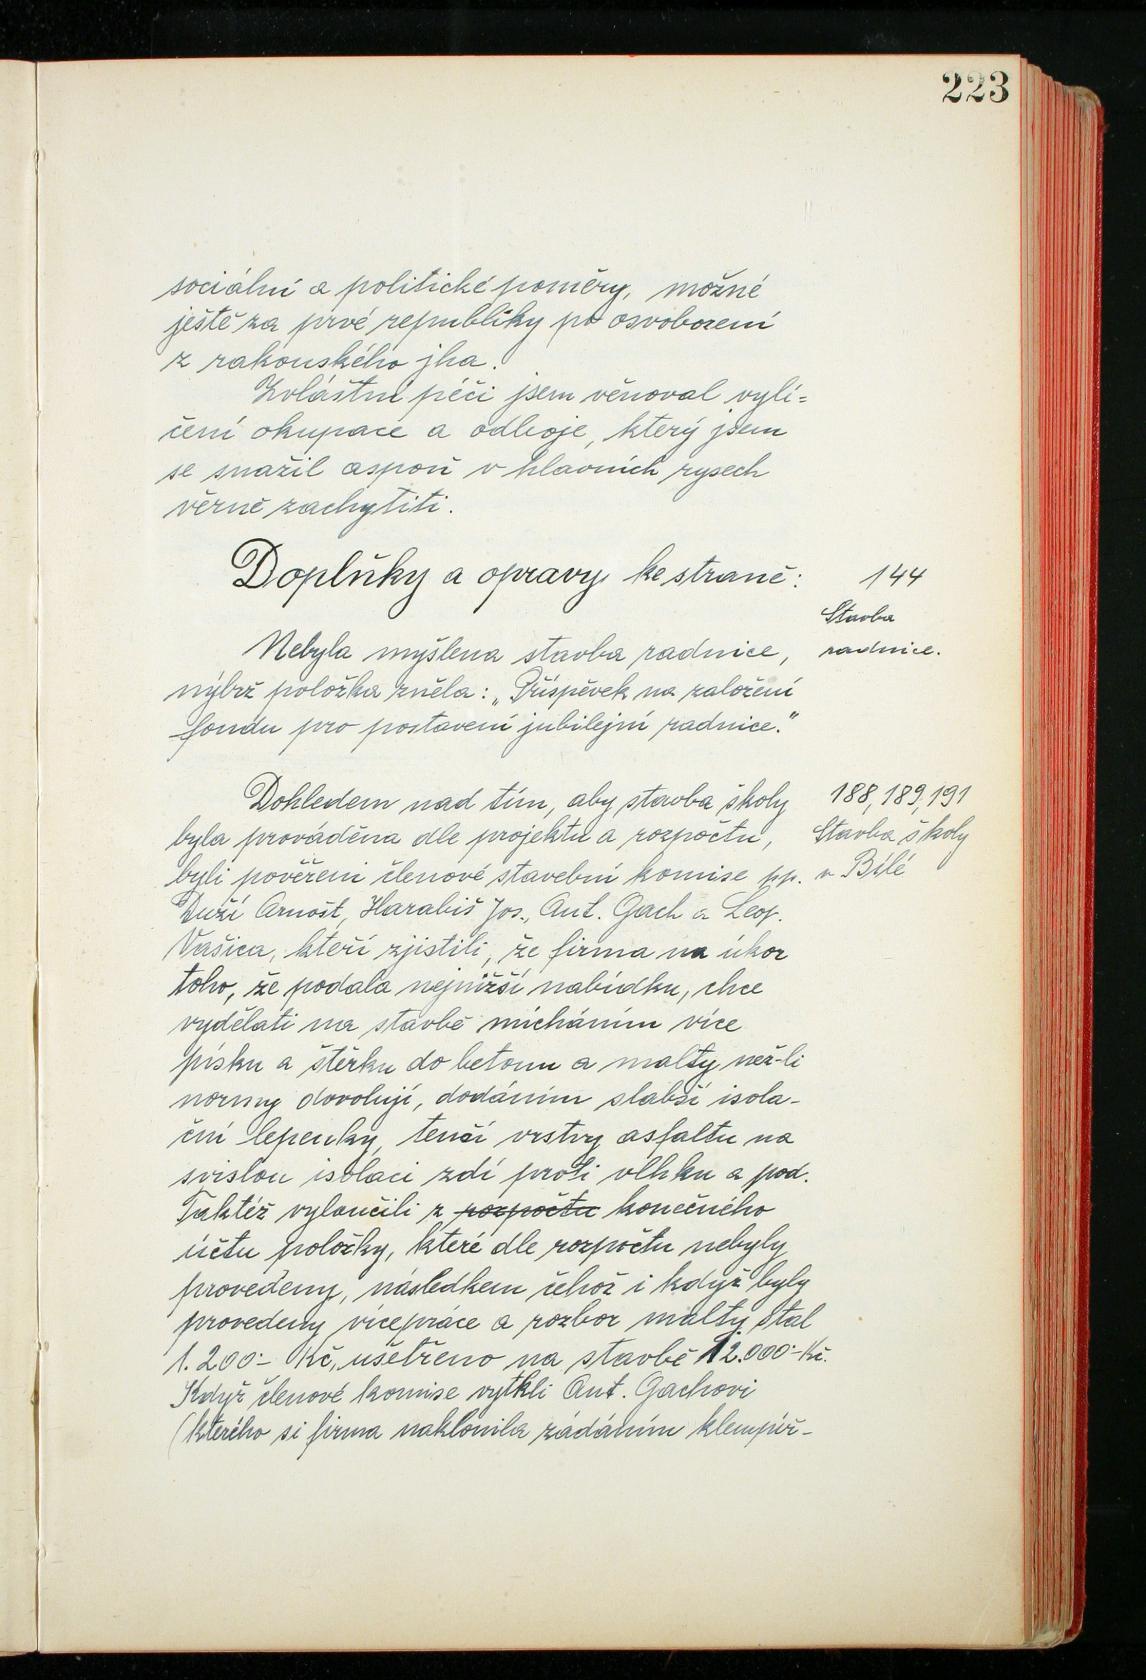 223
sociální a politické poměry, možné
ještě za prvé republiky po osvobození
z rakouského jha.
Zvláštní péči jsem věnoval vylí=
čení okupace a odboje, který jsem
se snažil aspoň v hlavních rysech
věrně zachytiti.
Doplňky a opravy ke straně: 144
Stavba
Nebyla myšlena stavba radnice, radnice.
nýbrž položka zněla: „Příspěvek na založení
fondu pro postavení jubilejní radnice."
Dohledem nad tím, aby stavba školy 188, 189, 191
byla prováděna dle projektu a rozpočtu, Stavba školy
byli pověřeni členové stavební komise pp. v Bílé
Duží Arnošt, Harabiš Jos., Ant. Gach a Leop.
Vašica, kteří zjistili, že firma na úkor
toho, že podala nejnižší nabídku, chce
vydělati na stavbě mícháním více
písku a štěrku do betonu a malty než-li
normy dovolují, dodáním slabší isola-
ční lepenky, tenčí vrstvy asfaltu na
svislou isolaci zdí proti vlhku a pod.
Taktéž vyloučili z rozpočtu konečného
účtu položky, které dle rozpočtu nebyly
provedeny, následkem čehož i když byly
provedeny vícepráce a rozbor malty stál
1.200·- Kč, ušetřeno na stavbě 12.000·- Kč.
Když členové komise vytkli Ant. Gachovi
(kterého si firma naklonila zadáním klempíř-